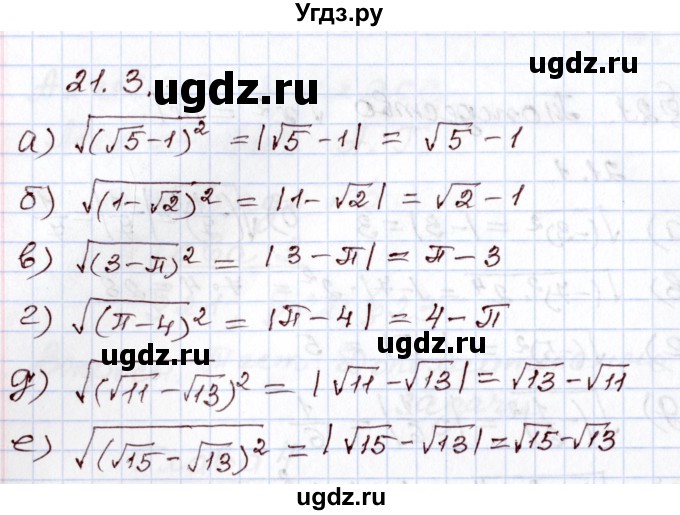 Угдз.ру
21. 3. ugdz.ru
а) √(√5-1)² = |√5-1| = √5-1
б) √(1-√2)² = |1-√2| = √2-1
в) √(3-π)² = |3-π| = π-3
г) √(π-4)² = |π-4| = 4-π
ugdz.ru ugdz.ru
д) √(√11-√13)² = |√11-√13| = √13-√11
е) √(√15-√13)² = |√15-√13| = √15-√13
ugdz.ru
ugdz.ru